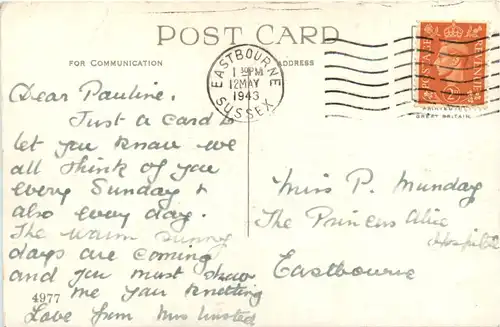 POST CARD
FOR COMMUNICATION
ADDRESS
EASTBOURNE
SUSSEX
1 30 PM
12 MAY
1943
POSTAGE REVENUE
GREAT BRITAIN
Dear Pauline.
Just a card to
let you know we
all think of you
every Sunday &
also every day.
The warm sunny
days are coming
and you must show
me your knitting
Love from Mrs
4977
Miss P. Munday
The Princess Alice
Hospital
Eastbourne